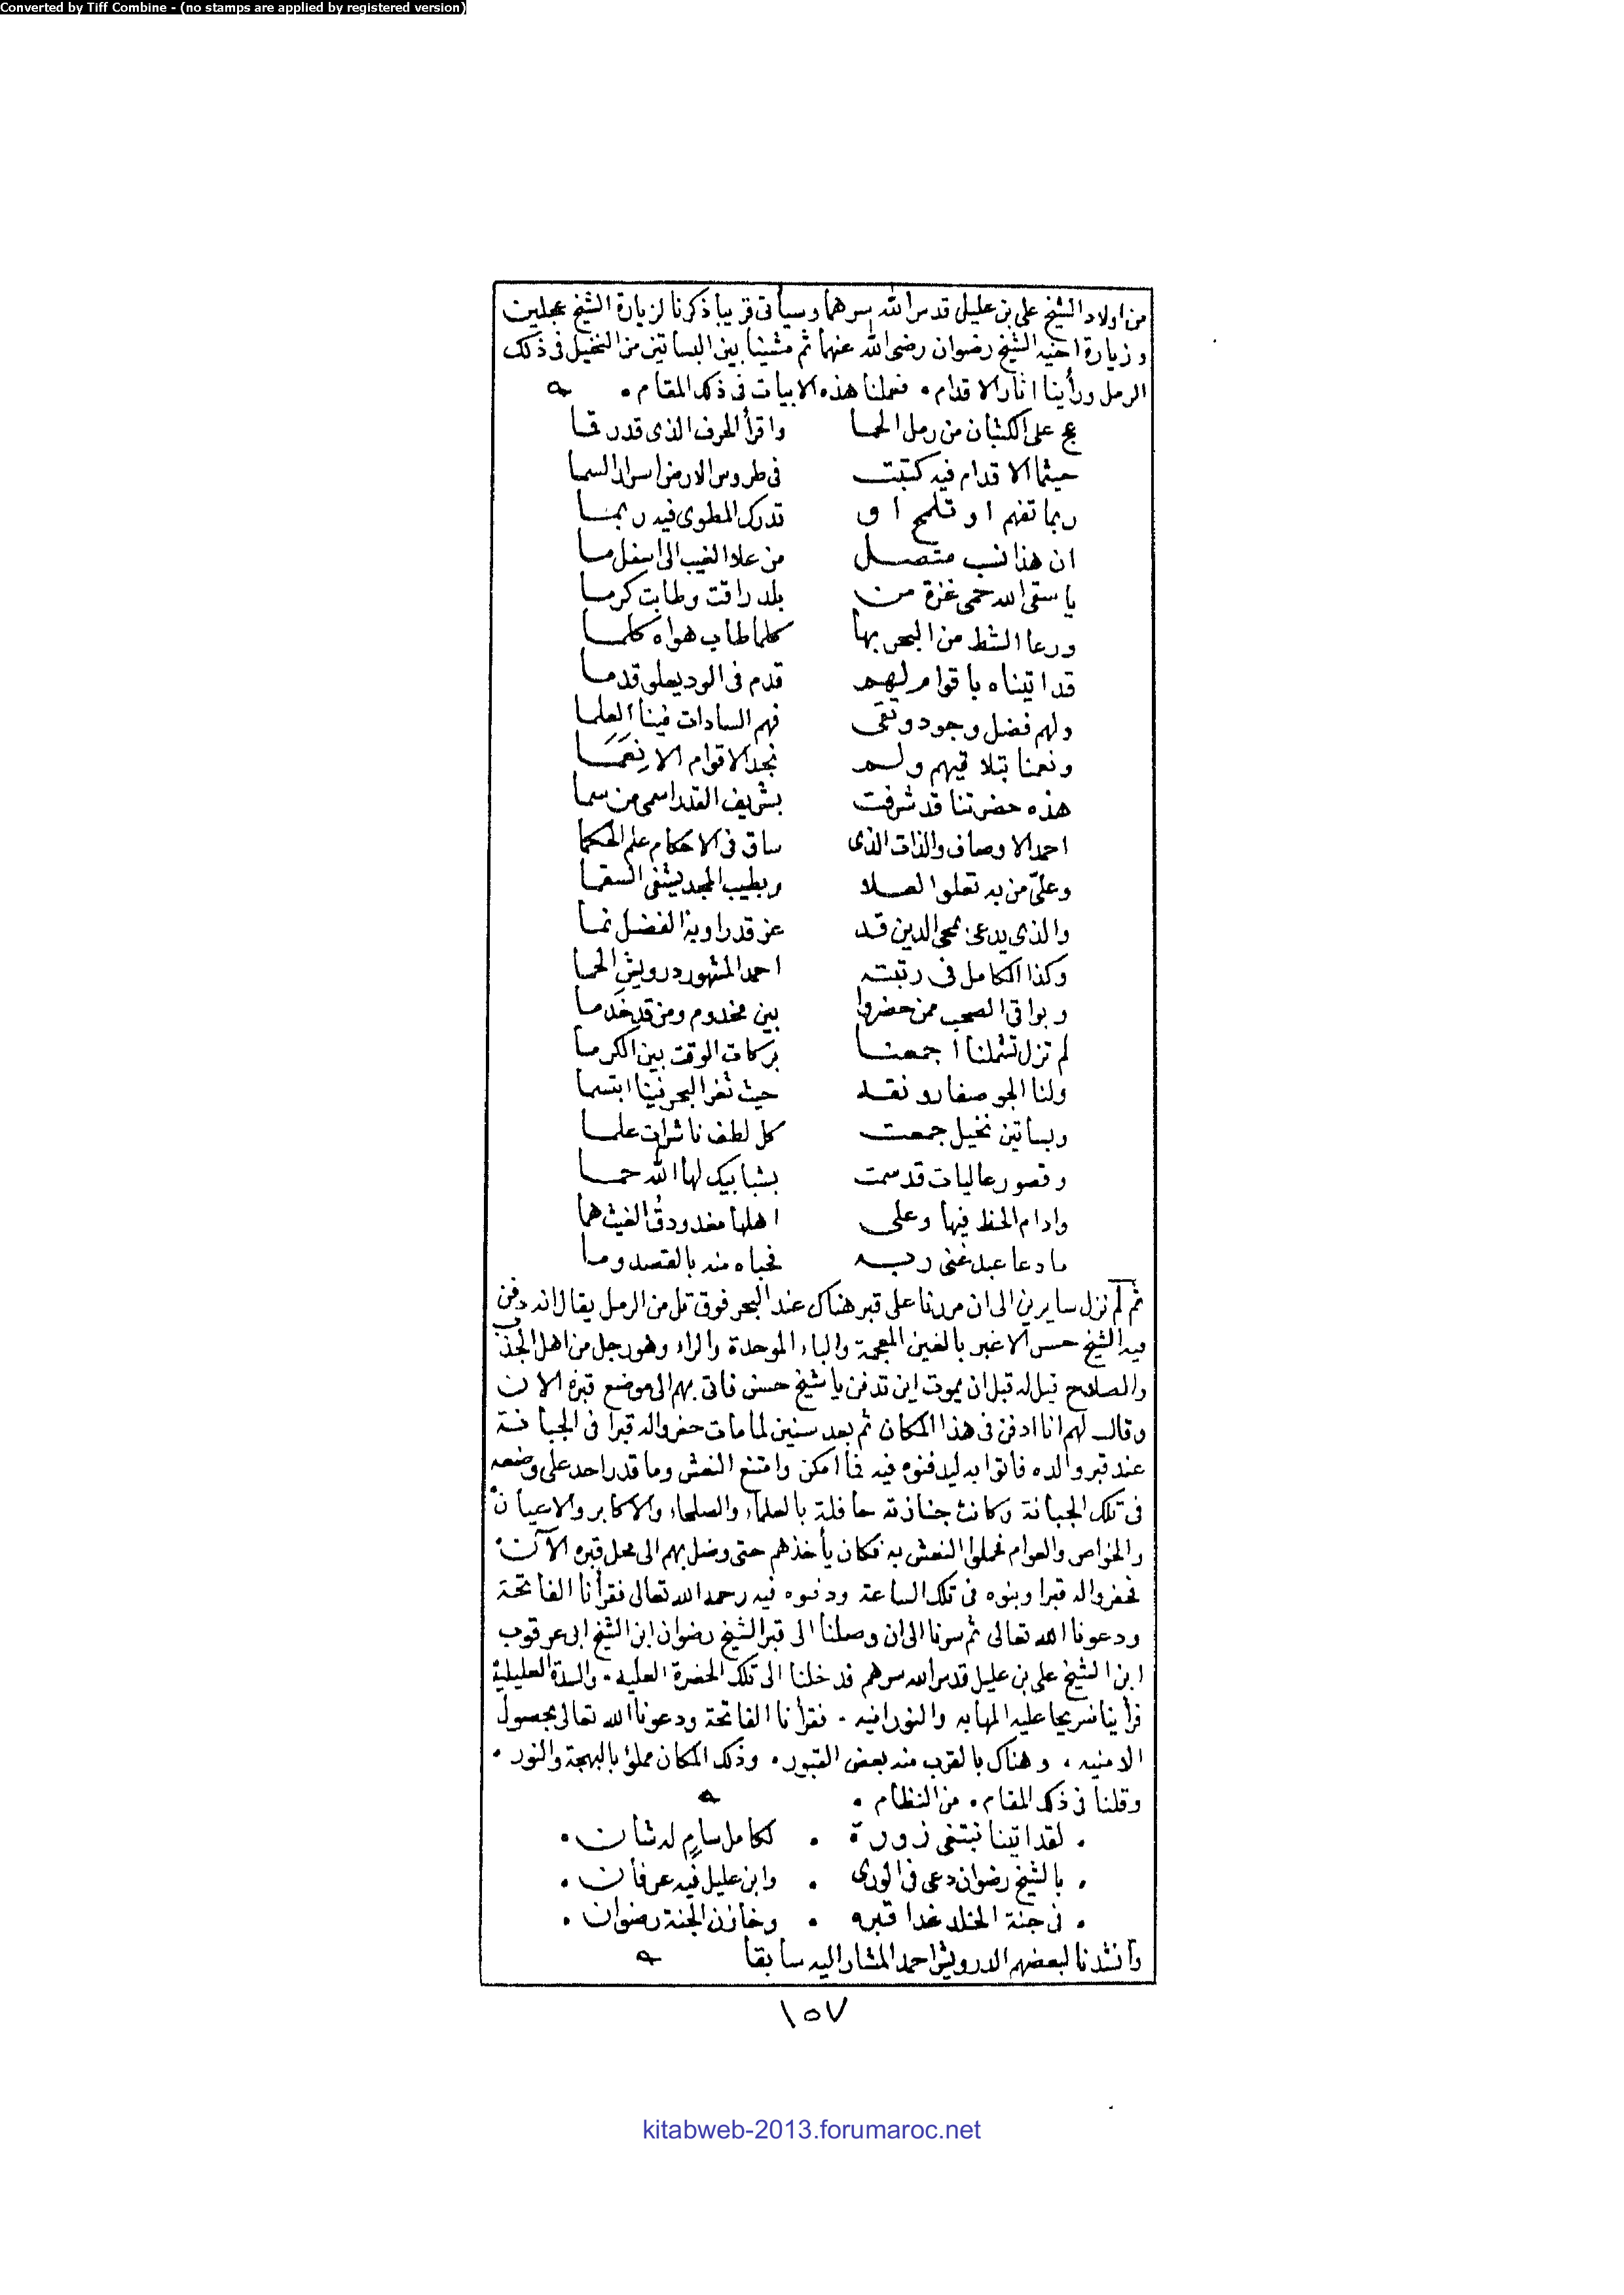 Converted by Tiff Combine - (no stamps are applied by registered version)
من اولاد الشيخ على بن عليل قدس الله سرهما وسيأتى قريبا ذكرنا لزيارة الشيخ عجلين
وزيارة اخيه الشيخ رضوان رضى الله عنهما ثم مشينا بين البساتين من النخيل فى ذلك
الرمل ورأينا اثار الاقدام • فعملنا هذه الابيات فى ذلك المقام •
عج على الكثبان من رمل الحما واقرأ الحرف الذى قد رقما
حيثما الاقدام فيه كتبت فى طروس الارض اسرار السما
ربما تفهم او تلمح او تدرك المطوى فيه ربمــا
ان هذا نسب متصــل من علا الغيب الى اسفل مــا
يا سقى الله حمى غزة من بلد راقت وطابت كرمــا
ورعا الشط من البحر بها كلما طاب هواه كلمــا
قد اتيناه باقوام لهم قدم فى الود يعلو قدمــا
ولهم فضل وجود وتقى فهم السادات فينا العلما
ونعمنا بتلاقيهم ولــم نجد الاقوام الا نِعَمَــا
هذه حضرتنا قد شرفت بشريف القدر اسمى من سما
احمد الاوصاف والذات الذى ساق فى الاحكام علم الحكما
وعلىّ من به تعلو العــلا وبطيب المجد يشفى السقما
والذى يدعى بمحى الدين قــد عز قدرا وبه الفضل نمــا
وكذا الكامل فى رتبته احمد المشهور درويش الحمــا
وبواقى الصحب ممن حضروا بين مخدوم ومن قد خَدمــا
لم تزل تشملنا اجمعنــا بركات الوقت بين الكرمــا
ولنا الجو صفا رونقــه حيث ثغر البحر فينا ابتسما
وبساتين نخيل جمعت كل لطف ناشرات علمــا
وقصور عاليات قد سمت بشبابيك لها الله حمــا
وادام الحظ فيها وعلى اهلها مغدودقُ الغيث هما
ما دعا عبد غنى ربــه فحباه منه بالقصد ومــا
ثم لم نزل سايرين الى ان مررنا على قبر هناك عند البحر فوق تل من الرمل يقال انه دفن
فيه الشيخ حسن الاغبر بالغين المعجمة والباء الموحدة والراء وهو رجل من اهل الجذب
والصلاح قيل له قبل ان يموت اين تدفن يا شيخ حسن فاتى بهم الى موضع قبره الان
وقال لهم انا ادفن فى هذا المكان ثم بعد سنين لما مات حفروا له قبرا فى الجبانــة
عند قبر والده فاتوا به ليدفنوه فيه فما امكن وامتنع النعش وما قدر احد على وضعه
فى تلك الجبانة وكانت جنازته حافلة بالعلماء والصلحاء والاكابر والاعيان
والخواص والعوام فحملوا النعش به فكان يأخذهم حتى وصل بهم الى محل قبره الآن •
فحفروا له قبرا وبنوه فى تلك الساعة ودفنوه فيه رحمه الله تعالى فقرأنا الفاتحة
ودعونا الله تعالى ثم سرنا الى ان وصلنا الى قبر الشيخ رضوان ابن الشيخ ابى عرقوب
ابن الشيخ على بن عليل قدس الله سرهم فدخلنا الى تلك الحضرة العليه • والسدة العليلية
فرأينا ضريحا عليه المهابه والنورانيه • فقرأنا الفاتحة ودعونا الله تعالى بحصول
الامنيه • وهناك بالقرب منه بعض القبور • وذلك المكان مملؤ بالبهجة والنور •
وقلنا فى ذلك المقام • من النظام •
• لقد اتينا نبتغى زورة • لكامل سامٍ له شان •
• بالشيخ رضوان دعى فى الورى • وابن عليل فيه عرفان •
• فى جنة الخلد غدا قبره • وخازن الجنة رضوان •
وانشدنا لبعضهم الدرويش احمد المشار اليه سابقا
١٥٧
kitabweb-2013.forumaroc.net